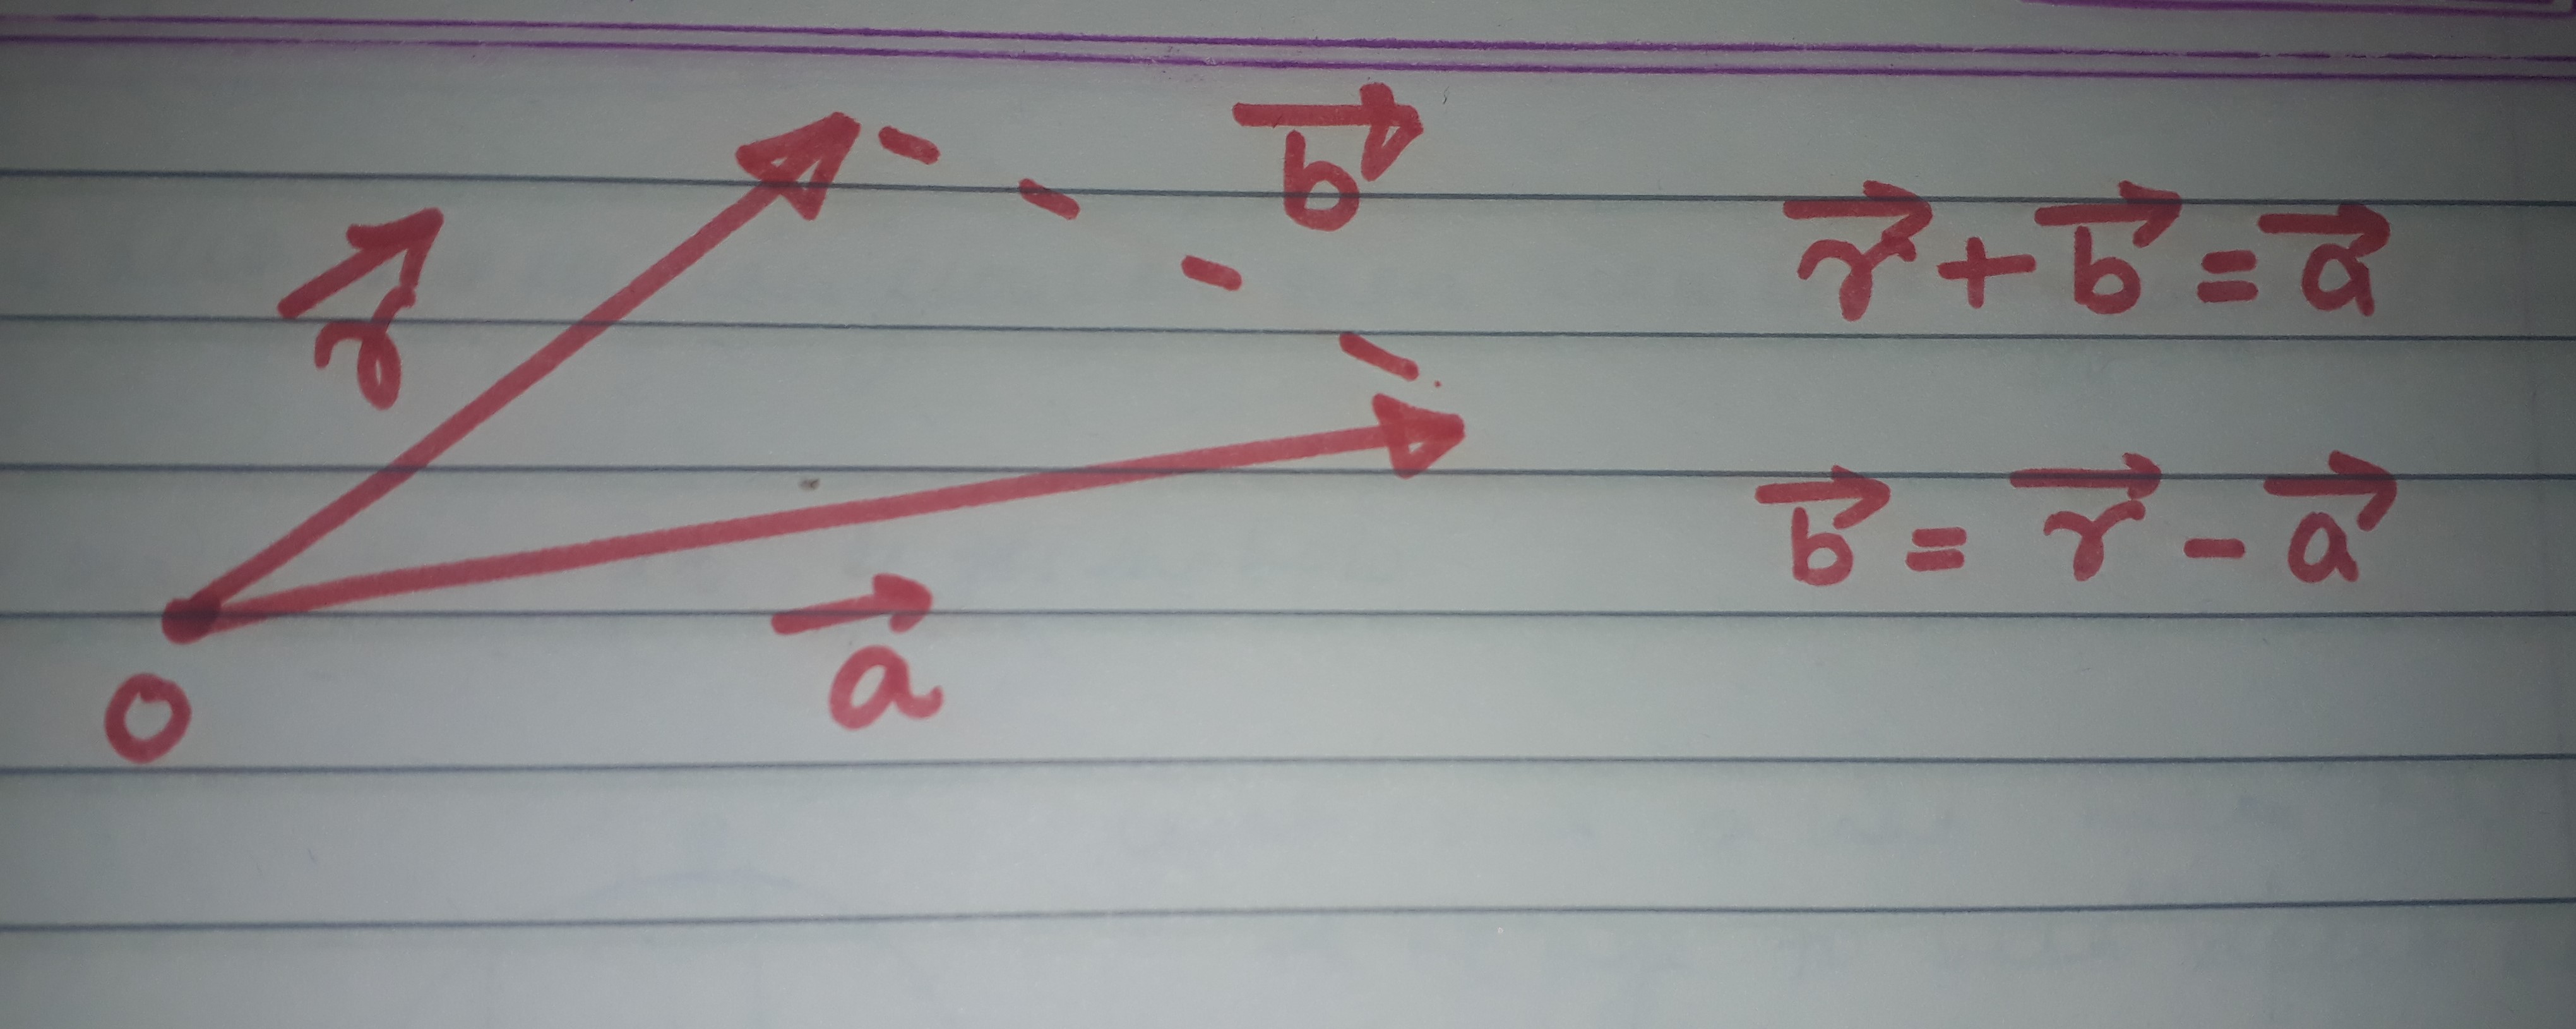 r⃗
b⃗
a⃗
O
r⃗ + b⃗ = a⃗
b⃗ = r⃗ - a⃗